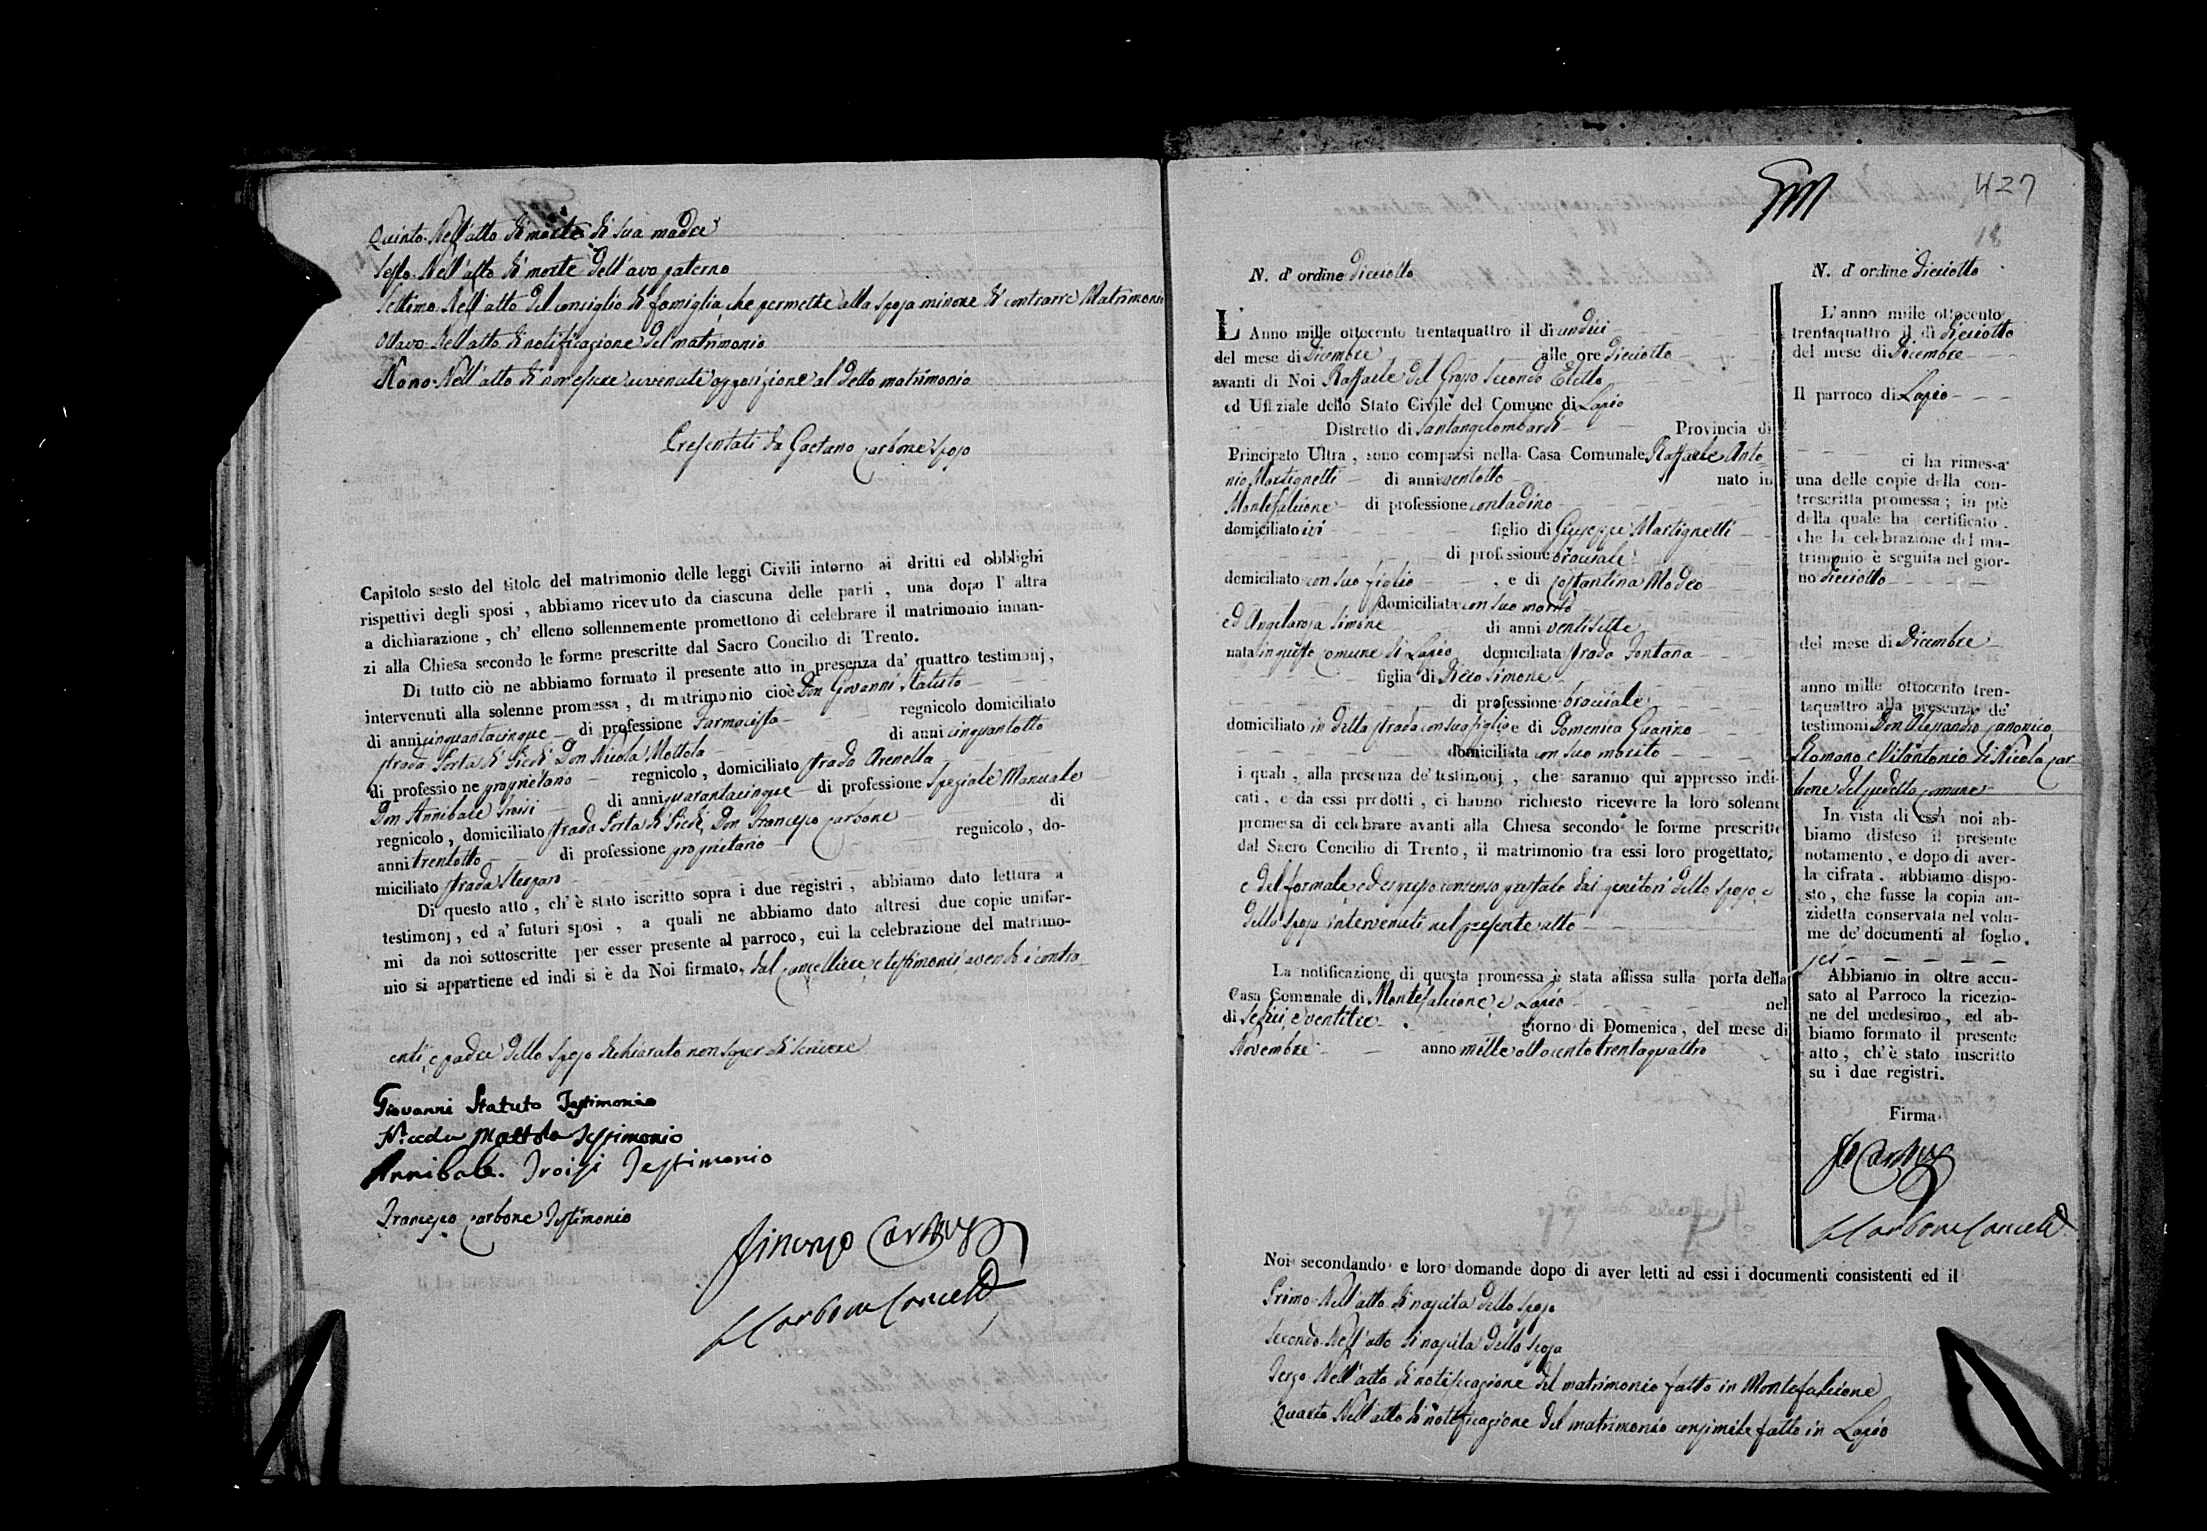 Quinto. Nell'atto di morte di sua madre
Sesto. Nell'atto di morte dell'avo paterno
Settimo. Nell'atto del consiglio di famiglia, che permette alla sposa minore di contrarre Matrimonio
Ottavo. Nell'atto di notificazione del matrimonio
Nono. Nell'atto di non essere avvenuta opposizione al detto matrimonio
Presentati da Gaetano Carbone sposo
Capitolo sesto del titolo del matrimonio delle leggi Civili intorno ai dritti ed obblighi
rispettivi degli sposi, abbiamo ricevuto da ciascuna delle parti, una dopo l'altra
a dichiarazione, ch' elleno sollennemente promettono di celebrare il matrimonio innan-
zi alla Chiesa secondo le forme prescritte dal Sacro Concilio di Trento.
Di tutto ciò ne abbiamo formato il presente atto in presenza da' quattro testimonj,
intervenuti alla solenne promessa, di matrimonio cioè Don Giovanni Statuto
di anni cinquantacinque di professione Farmacista regnicolo domiciliato
strada Porta di Piedi Don Nicola Mottola di anni cinquantotto
di professione proprietario regnicolo, domiciliato strada Arenella
Don Annibale Troisi di anni quarantacinque di professione Speziale Manuale
regnicolo, domiciliato strada Porta di Piedi, Don Francesco Carbone di
anni trentotto di professione proprietario regnicolo, do-
miciliato strada
Di questo atto, ch'è stato iscritto sopra i due registri, abbiamo dato lettura a
testimonj, ed a' futuri sposi, a quali ne abbiamo dato altresì due copie unifor-
mi da noi sottoscritte per esser presente al parroco, cui la celebrazione del matrimo-
nio si appartiene ed indi si è da Noi firmato, dal cancelliere e testimonii avendo i contra
enti, e padre dello sposo dichiarato non saper di scrivere
Giovanni Statuto Testimonio
Nicola Mottola Testimonio
Annibale Troisi Testimonio
Francesco Carbone Testimonio
Carbone Cancell
427
18
N. d'ordine diciotto
L'Anno mille ottocento trentaquattro il dì undici
del mese di Dicembre alle ore diciotto
avanti di Noi Raffaele del Grosso Secondo Eletto
ed Ufiziale dello Stato Civile del Comune di Lapio
Distretto di Santangelombardi Provincia di
Principato Ultra, sono comparsi nella Casa Comunale Raffaele Anto-
nio Martignetti di anni ventotto nato in
Montefalcione di professione contadino
domiciliato ivi figlio di Giuseppe Martignetti
di professione bracciale
domiciliato con suo figlio, e di Costantina Modeo
domiciliata con suo marito
ed Angelarosa Simone di anni ventisette
nata in questo Comune di Lapio domiciliata strada Fontana
figlia di Simone
di professione bracciale
domiciliato in detta strada con sua figlia e di Domenica Guarino
domiciliata con suo marito
i quali, alla presenza de' testimonj, che saranno qui appresso indi-
cati, e da essi prodotti, ci hanno richiesto ricevere la loro solenne
promessa di celebrare avanti alla Chiesa secondo le forme prescritte
dal Sacro Concilio di Trento, il matrimonio tra essi loro progettato,
e del formale, ed espresso consenso prestato dai genitori dello sposo, e
della sposa intervenuti nel presente atto
La notificazione di questa promessa è stata affissa sulla porta della
Casa Comunale di Montefalcione, e Lapio nel
di sedici, e ventitre giorno di Domenica, del mese di
Novembre anno mille ottocento trentaquattro
N. d'ordine diciotto
L'anno mille ottocento
trentaquattro il dì diciotto
del mese di Dicembre
Il parroco di Lapio
ci ha rimessa
una delle copie della con-
troscritta promessa; in piè
della quale ha certificato
che la celebrazione del ma-
trimonio è seguita nel gior-
no diciotto
del mese di Dicembre
anno mille ottocento tren-
taquattro alla presenza de'
testimoni Don Alessandro canonico
Romano e Vitantonio di Nicola Car-
bone del sudetto comune
In vista di essa noi ab-
biamo disteso il presente
notamento, e dopo di aver-
la cifrata, abbiamo dispo-
sto, che fusse la copia an-
zidetta conservata nel volu-
me de' documenti al foglio
sei
Abbiamo in oltre accu-
sato al Parroco la ricezio-
ne del medesimo, ed ab-
biamo formato il presente
atto, ch'è stato inscritto
su i due registri.
Firma
Carbone Cancell
Noi secondando e loro domande dopo di aver letti ad essi i documenti consistenti ed il
Primo. Nell'atto di nascita dello sposo
Secondo. Nell'atto di nascita della sposa
Terzo. Nell'atto di notificazione del matrimonio fatto in Montefalcione
Quarto. Nell'atto di notificazione del matrimonio consimile fatto in Lapio